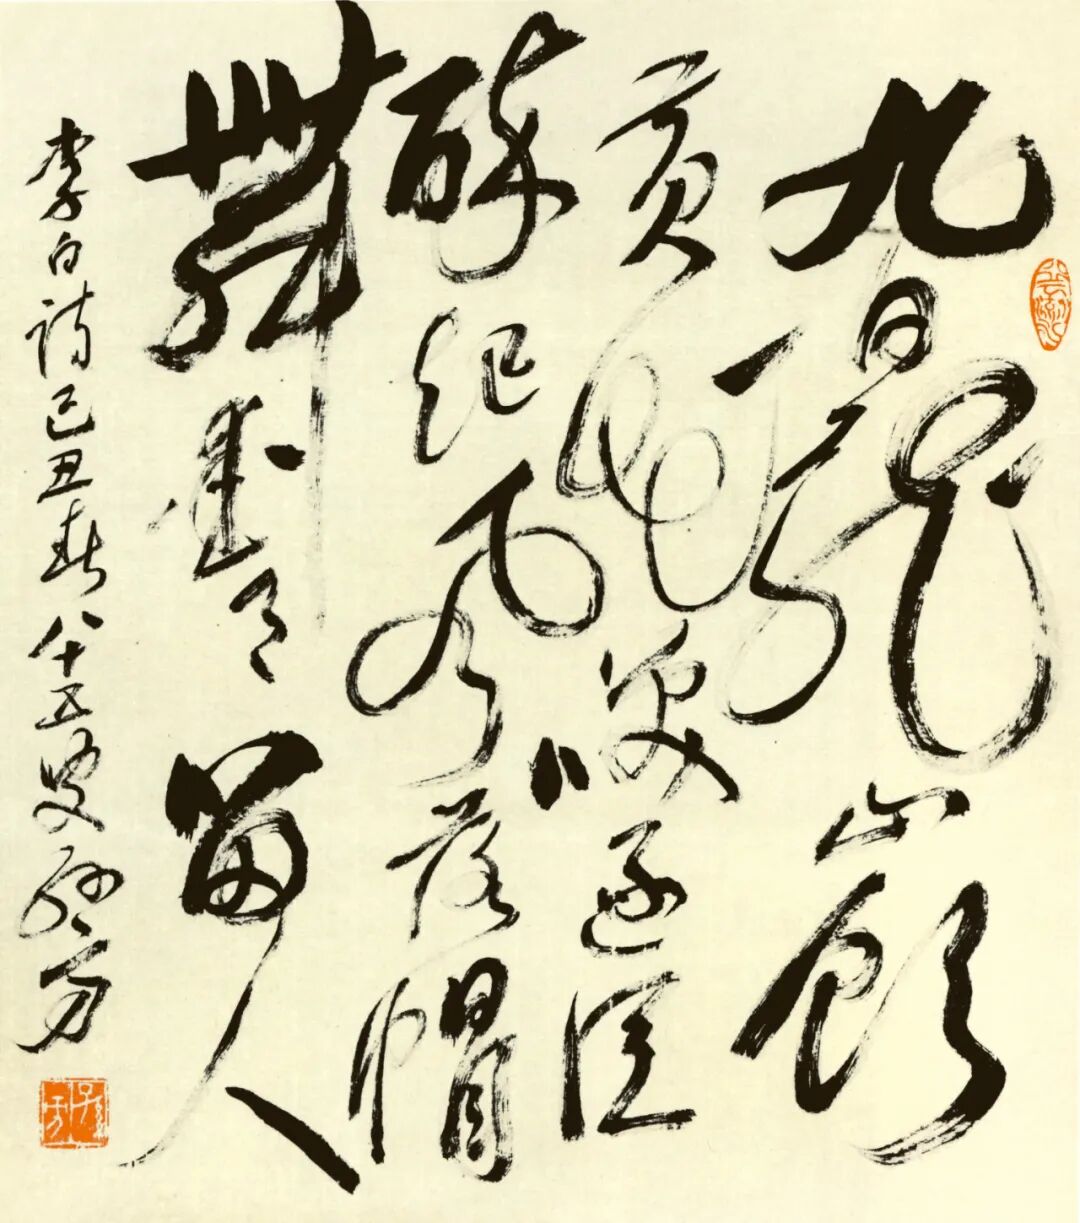 九日龍山飲
黃花咲逐臣
醉紀風落帽
舞愛月留人
李白詩己丑春八十五叟孫方